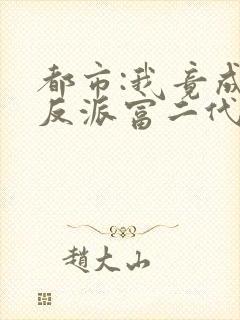 都市:我竟成
反派富二代
趙大山